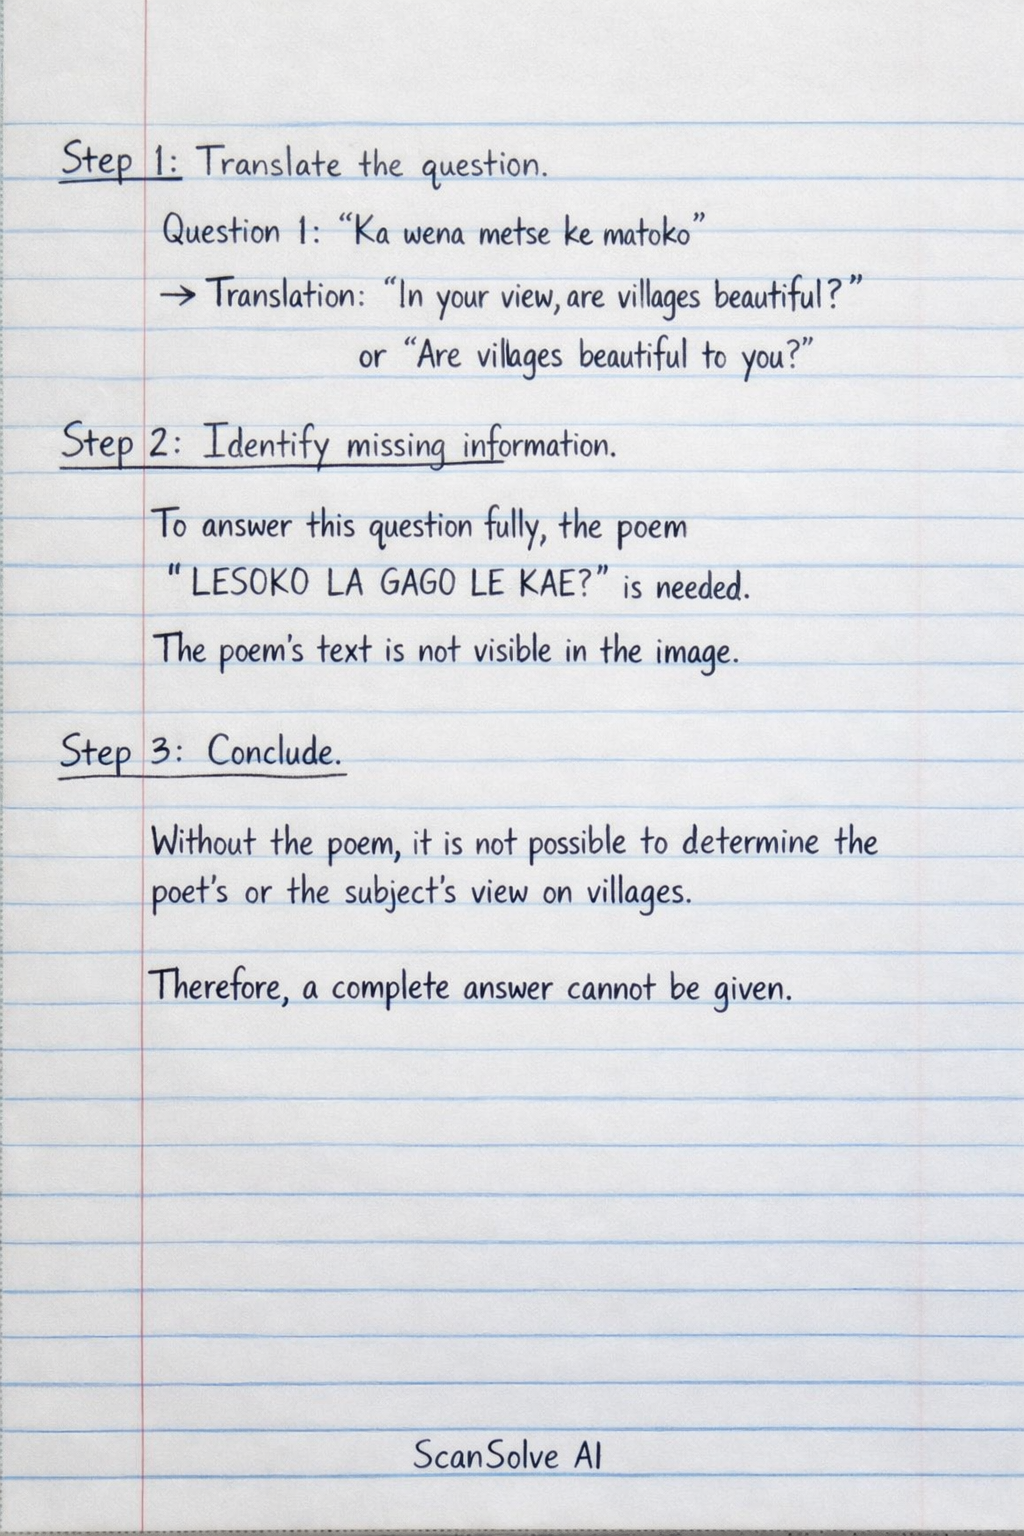 Step 1: Translate the question.
Question 1: “Ka wena metse ke matoko”
→ Translation: “In your view, are villages beautiful?”
or “Are villages beautiful to you?”
Step 2: Identify missing information.
To answer this question fully, the poem
“LESOKO LA GAGO LE KAE?” is needed.
The poem's text is not visible in the image.
Step 3: Conclude.
Without the poem, it is not possible to determine the
poet's or the subject's view on villages.
Therefore, a complete answer cannot be given.
ScanSolve AI